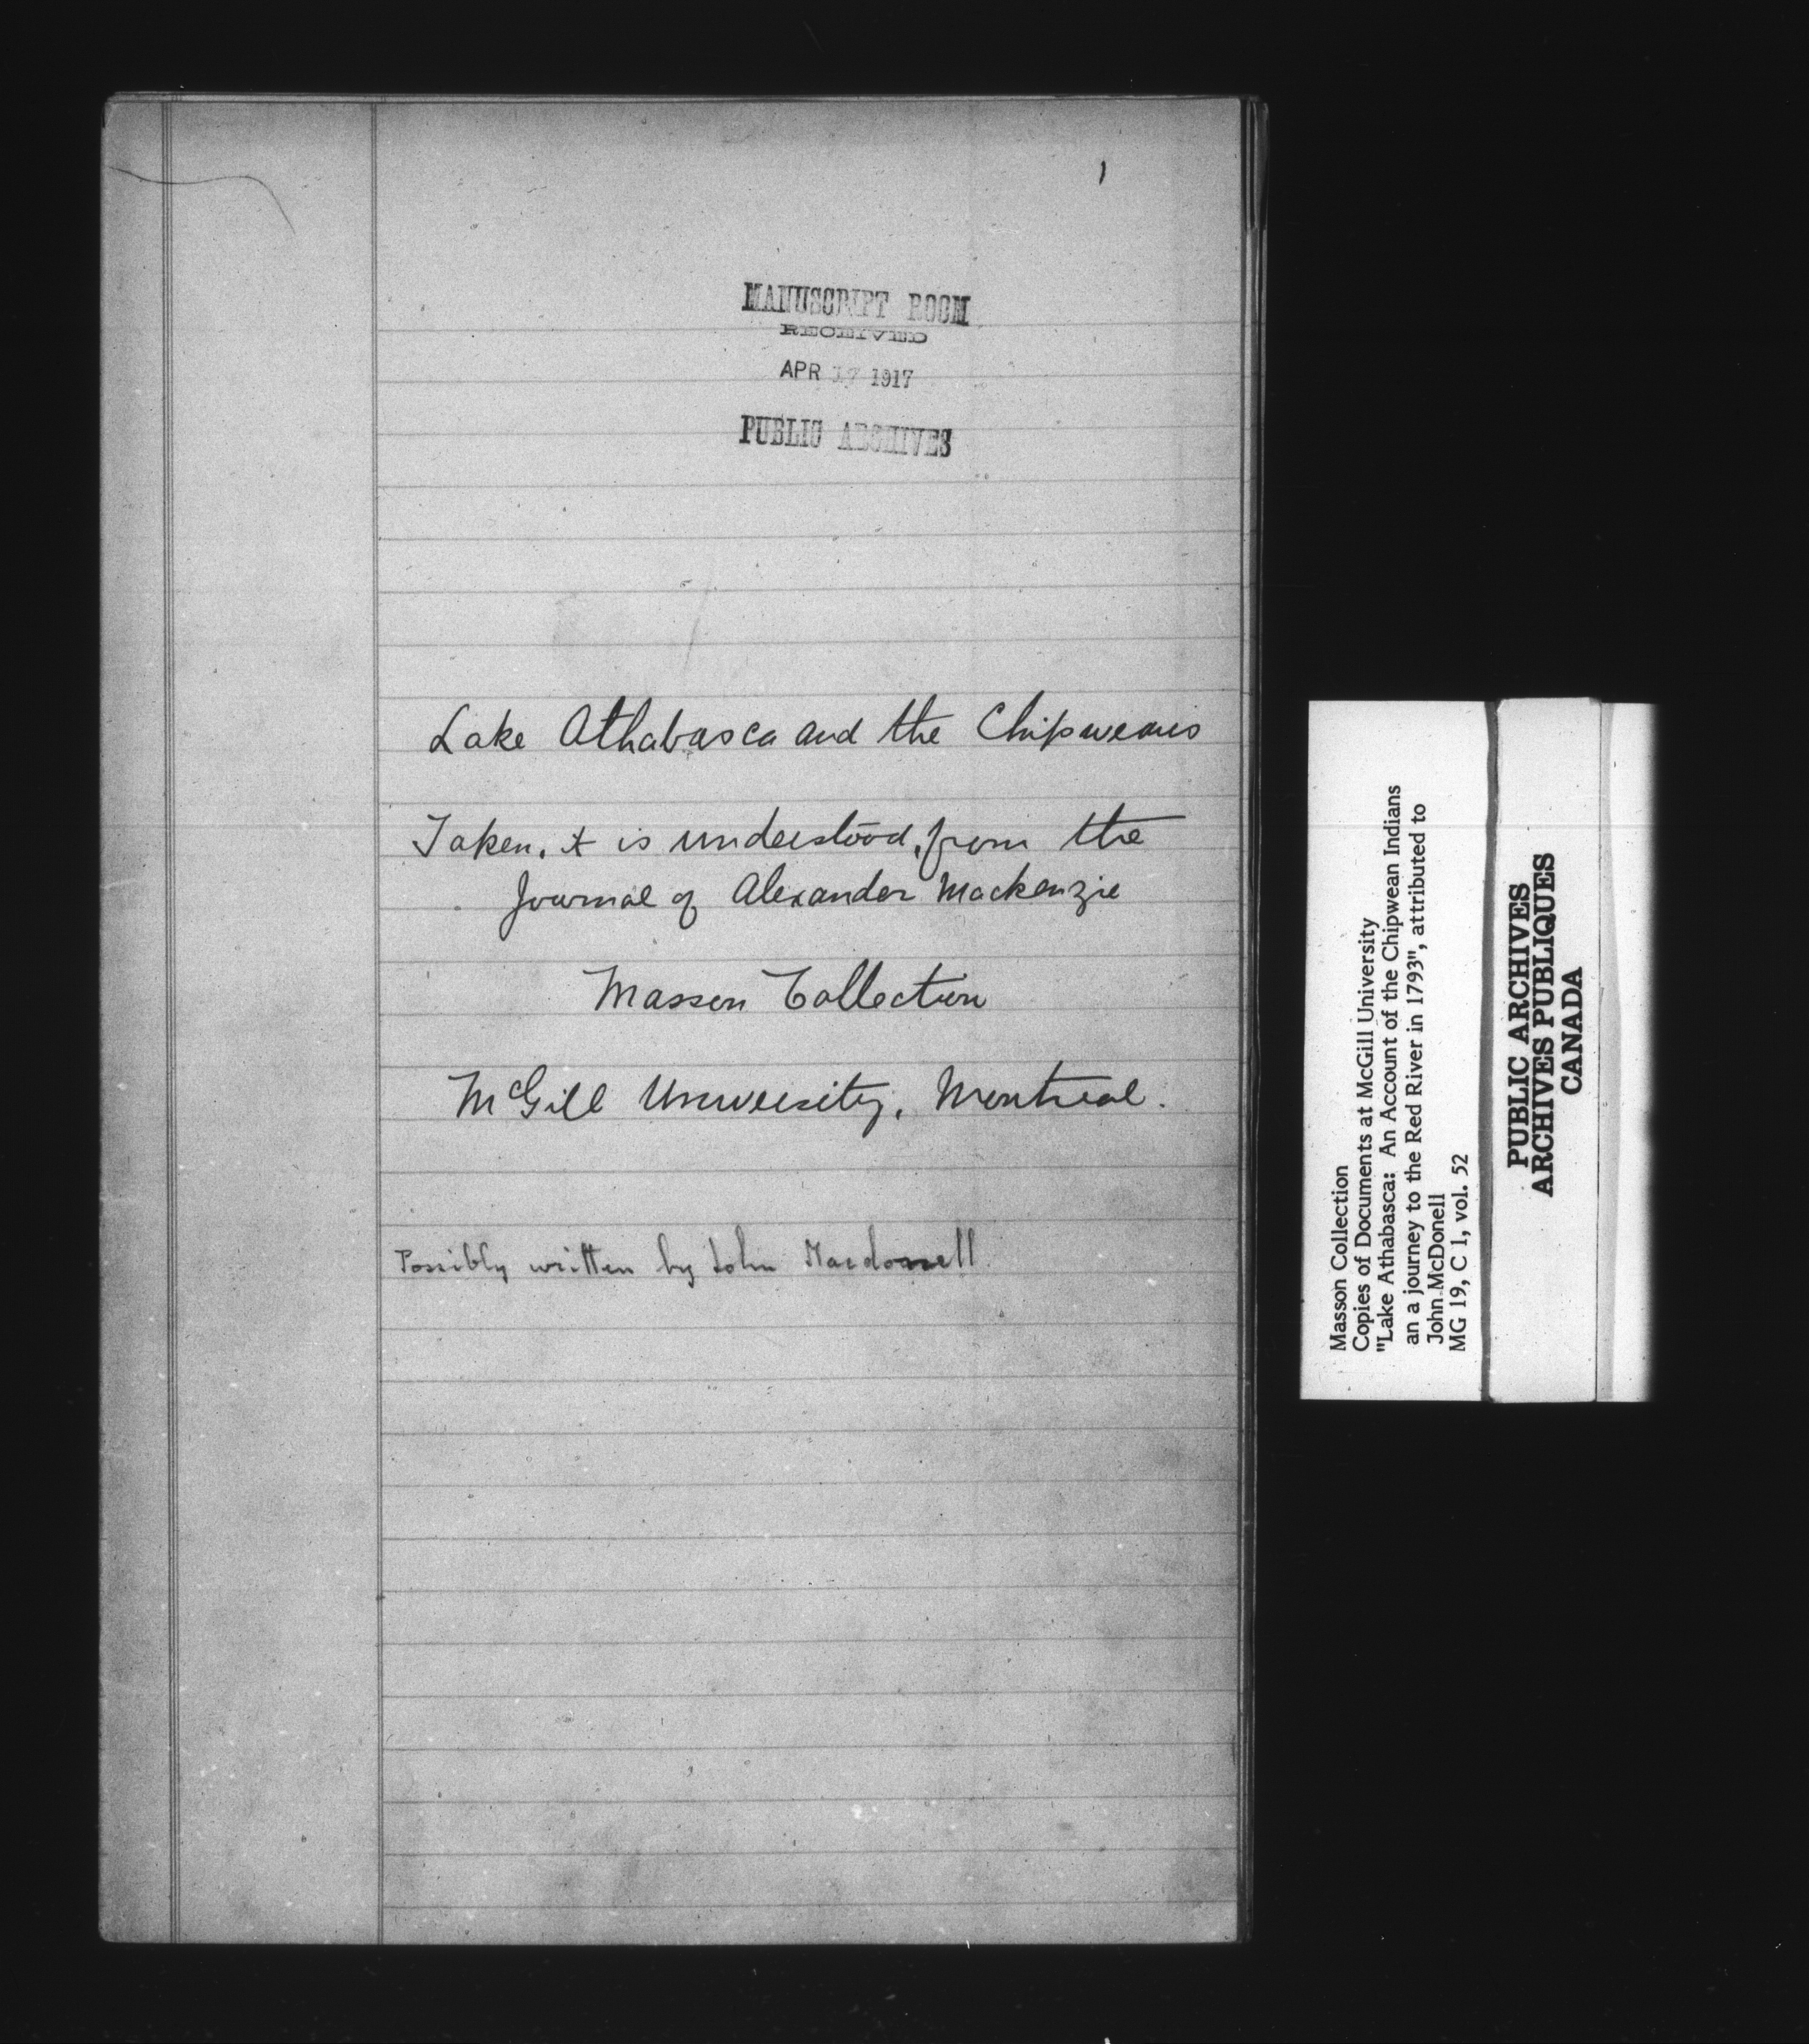 1
MANUSCRIPT ROOM
RECEIVED
APR 17 1917
PUBLIC ARCHIVES
Lake Athabasca and the Chipweans
Taken, it is understood, from the
Journal of Alexander Mackenzie
Masson Collection
McGill University, Montreal.
Possibly written by John Macdonell
Masson Collection
Copies of Documents at McGill University
"Lake Athabasca: An Account of the Chipwean Indians
an a journey to the Red River in 1793", attributed to
John McDonell
MG 19, C 1, vol. 52
PUBLIC ARCHIVES
ARCHIVES PUBLIQUES
CANADA